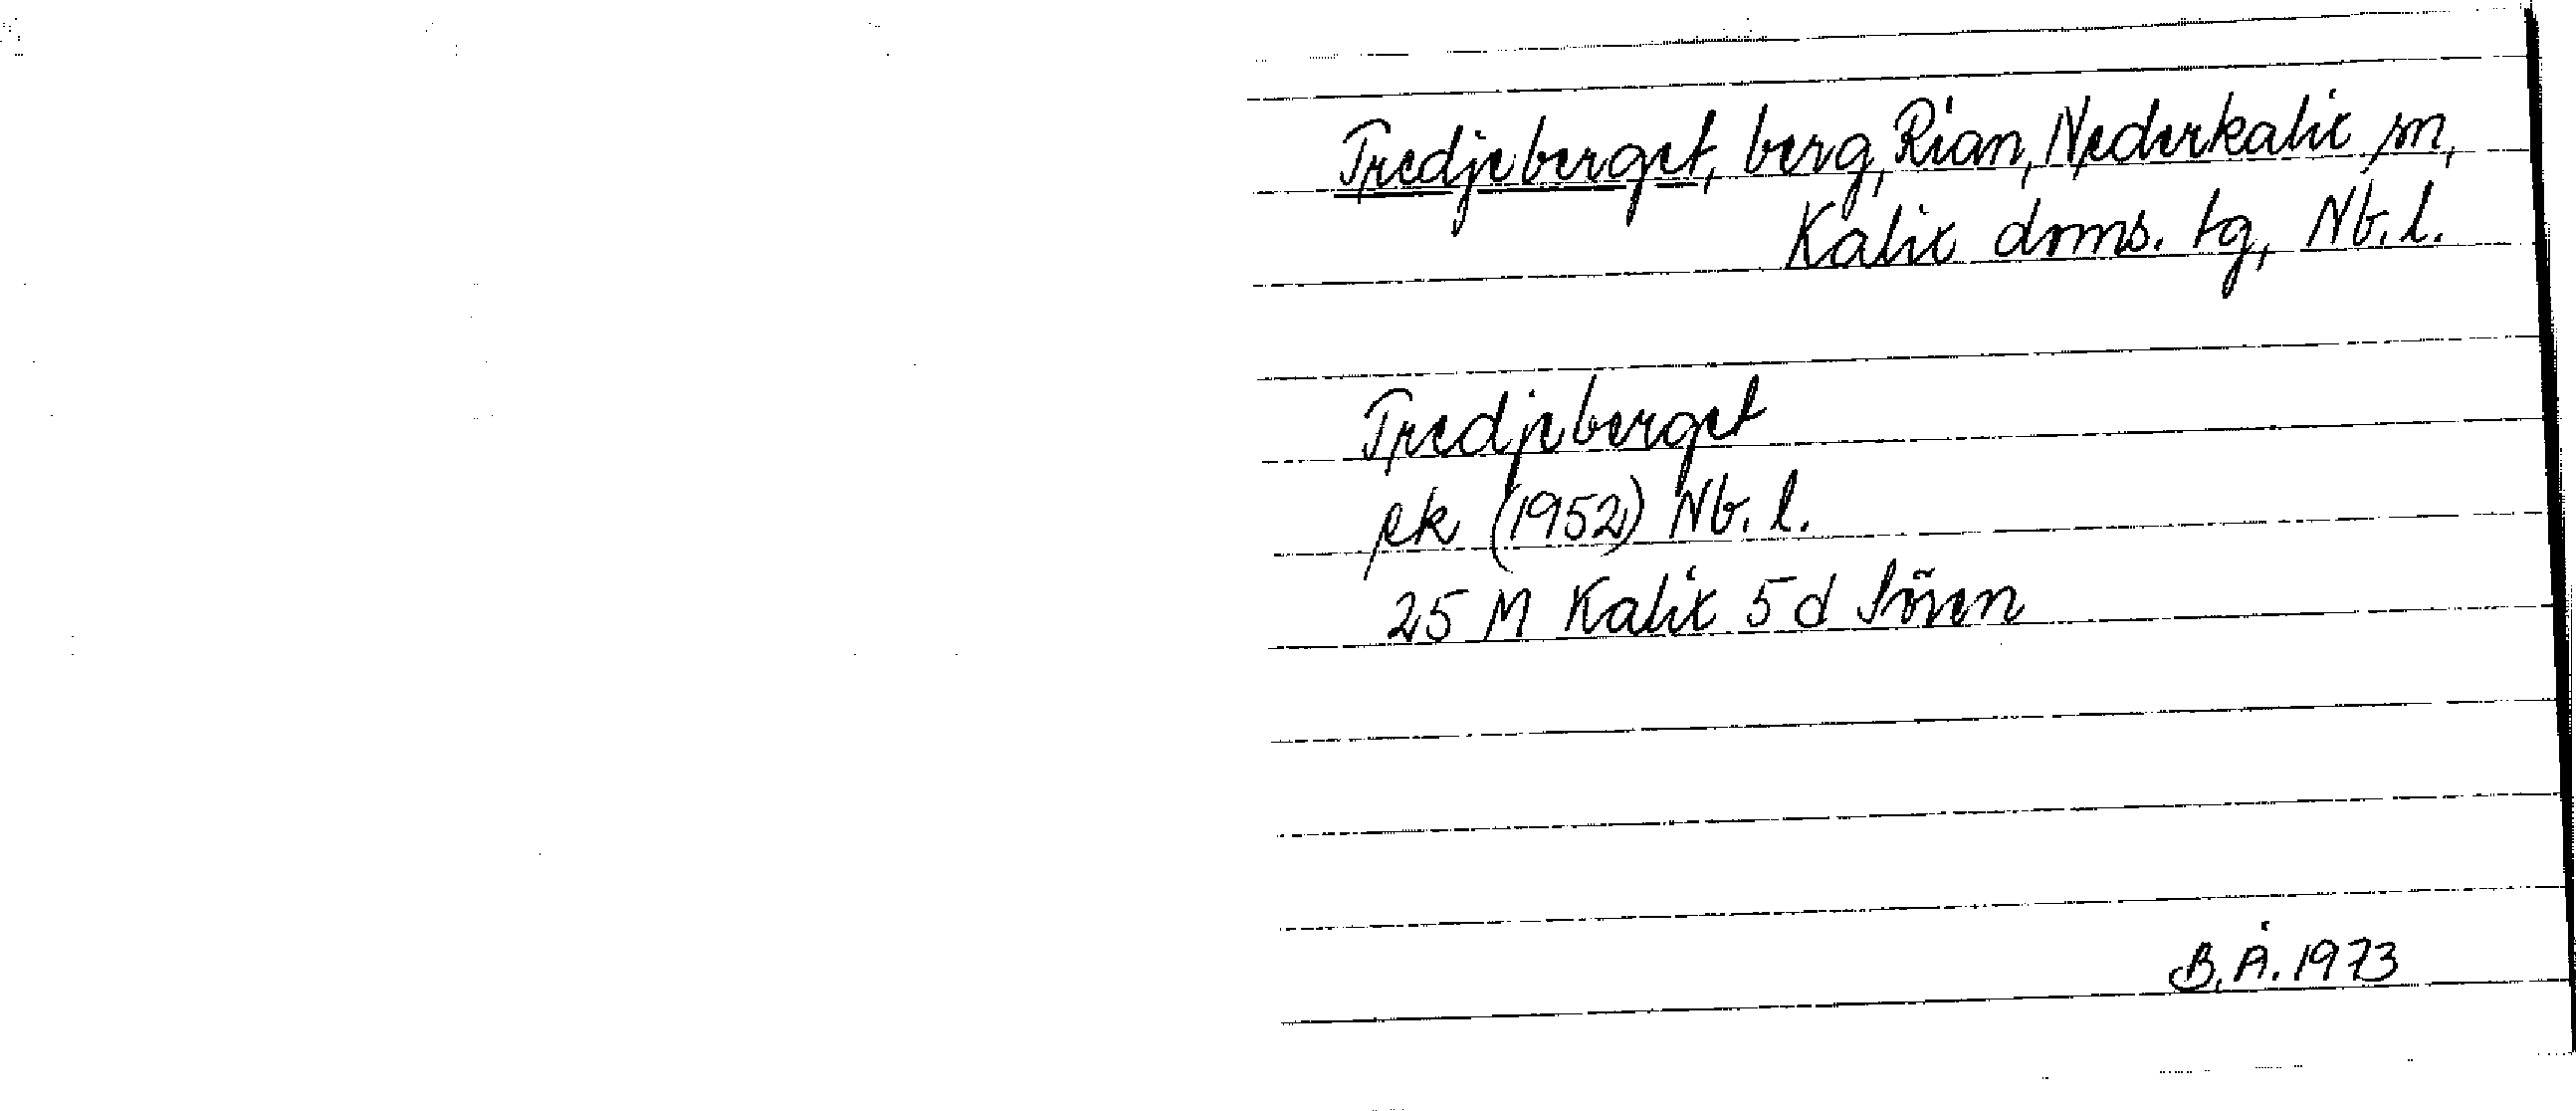 Tredjeberget, berg, Rian, Nederkalix sn,
Kalix doms. tg, Nb. l.
Tredjeberget
ek (1952) Nb. l.
25 M Kalix 5 d Söven
B. Å. 1973